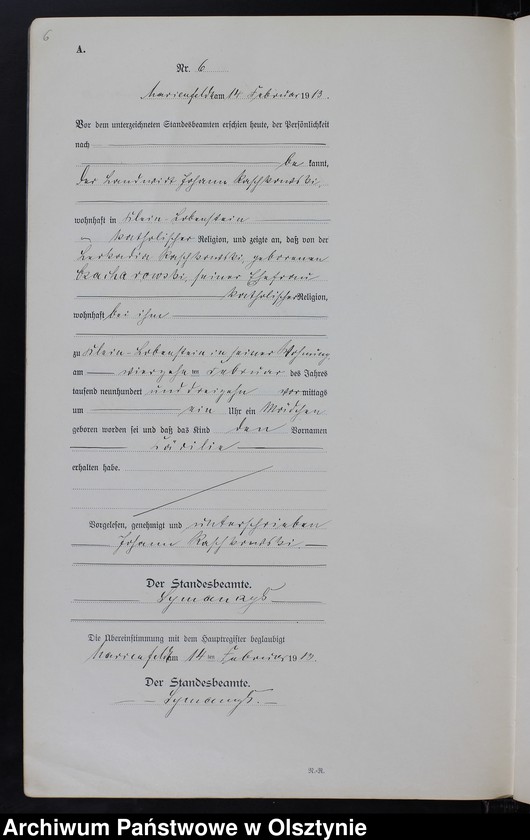 6
A.
Nr. 6
Marienfelde am 14 Februar 1913.
Vor dem unterzeichneten Standesbeamten erschien heute, der Persönlichkeit
nach
be kannt,
der Landwirt Johann Raschkowski,
wohnhaft in Klein-Lobenstein
katholischer Religion, und zeigte an, daß von der
Leokadia Raschkowski, geborenen
seiner Ehefrau
katholischer Religion,
wohnhaft bei ihm
zu Klein-Lobenstein in seiner Wohnung
am vierzehn ten Februar des Jahres
tausend neunhundert und dreizehn vor mittags
um ein Uhr ein Mädchen
geboren worden sei und daß das Kind den Vornamen
Cäcilie
erhalten habe.
Vorgelesen, genehmigt und unterschrieben
Johann Raschkowski.
Der Standesbeamte.
Symanczyk
Die Übereinstimmung mit dem Hauptregister beglaubigt
Marienfelde am 14 ten Februar 1913.
Der Standesbeamte.
Symanczyk.
R.-R.
Archiwum Państwowe w Olsztynie